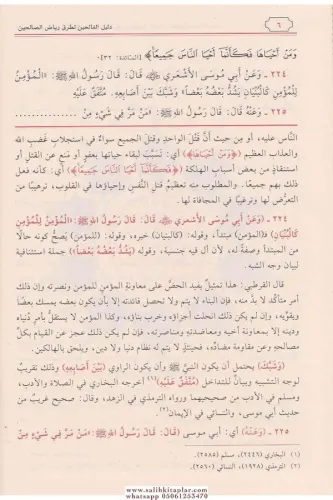 ٦ دليل الفالحين لطرق رياض الصالحين
وَمَنْ أَحْيَاهَا فَكَأَنَّمَا أَحْيَا النَّاسَ جَمِيعًا﴾ [المائدة: ٣٢].
٢٢٤ ـ وَعَنْ أَبِي مُوسَى الأَشْعَرِيِّ ﷺ قَالَ: قَالَ رَسُولُ اللهِ ﷺ: «الْمُؤْمِنُ
لِلْمُؤْمِنِ كَالْبُنْيَانِ يَشُدُّ بَعْضُهُ بَعْضاً» وَشَبَّكَ بَيْنَ أَصَابِعِهِ. مُتَّفَقٌ عَلَيْهِ
٢٢٥ ـ وَعَنْهُ قَالَ: قَالَ رَسُولُ اللهِ ﷺ: «مَنْ مَرَّ فِي شَيْءٍ مِنْ ...............
النَّاس عليه، أو مِن حيث أنَّ قَتْلَ الواحدِ وقتلَ الجميع سواءٌ في استجلاب غضب الله
والعذاب العظيم (﴿وَمَنْ أَحْيَاهَا﴾) أي: تسبَّبَ لبقاء حياتها بعفو أو منع عن القتل أو
استنقاذٍ من بعض أسباب الهلكة (﴿فَكَأَنَّمَا أَحْيَا النَّاسَ جَمِيعًا﴾) أي: كأنه فعل
ذلك بهم جميعًا. والمطلوب منه تعظيمُ قتل النَّفس وإحياؤها في القلوب، ترهيبًا من
التعرُّض لها وترغيبًا في المحاماة لها.
٢٢٤ ـ (وَعَنْ أَبِي مُوسَى الأشعري قَالَ: قَالَ رَسُولُ اللهِ ﷺ: «الْمُؤْمِنُ لِلْمُؤْمِنِ
كَالْبُنْيَانِ) فـ(المؤمن) مبتدأ، وقوله: (كالبنيان) خبره، وقوله: (للمؤمن) يَصحُّ كونه حالًا
من المبتدأ وصفةً له، لأن أل فيه جنسية، وقوله (يَشُدُّ بَعْضُهُ بَعْضاً») جملة استئنافية
لبيان وجه الشبه.
قال القرطبي: هذا تمثيلٌ يفيد الحضَّ على معاونةِ المؤمنِ للمؤمن ونصرته وإن ذلك
أمر متأكدٌ لا بدَّ منه، فإن البناء لا يتم ولا تحصل فائدته إلا بأن يكون بعضه يمسك بعضًا
ويقوِّيه، وإن لم يكن ذلك انحلت أجزاؤه وخرب بناؤه، وكذا المؤمن لا يستقلُّ بأمرِ دُنياه
ودينه إلا بمعاونة أخيه ومعاضدته ومناصرته، فإن لم يكن ذلك عجز عن القيام بكلِّ
مصالحه وعن مقاومة مضادِّه، فحينئذٍ لا يتم له نظام دنيا ولا دين، ويلحق بالهالكين.
(وَشَبَّكَ) يحتمل أن يكون النبيّ ﷺ وأن يكون الراوي (بَيْنَ أَصَابِعِهِ) وذلك تقريبٌ
لوجه التشبيه وبيانٌ للتداخل (مُتَّفَقٌ عَلَيْهِ)(١) أخرجه البخاري في الصلاة والأدب،
ومسلم في الأدب من صحيحيهما ورواه الترمذي في الزهد، وقال: صحيح غريبٌ من
حديث أبي موسى، والنسائي في الإيمان(٢).
٢٢٥ ـ (وَعَنْهُ) أي: أبي موسى (قَالَ: قَالَ رَسُولُ اللهِ ﷺ: «مَنْ مَرَّ فِي شَيْءٍ مِنْ
(١) البخاري (٢٤٤٦)، مسلم (٢٥٨٥).
(٢) الترمذي (١٩٢٨)، النسائي (٢٥٦٠).
www.salihkitaplar.com
whatsapp 05061253470